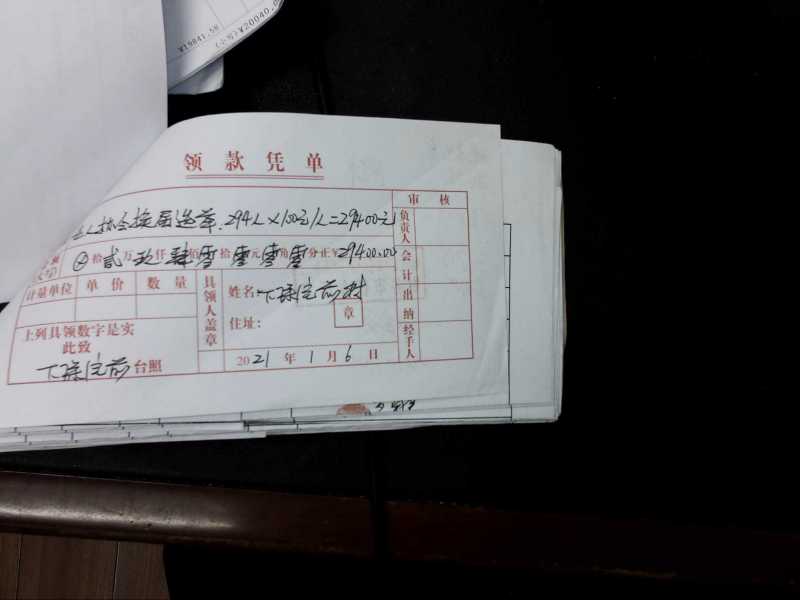 ¥19841.58
(小写)¥20040.0
领款凭单
审核
协会换届选举.294人×100元/人=29400元
负责人
拾贰万玖仟肆佰零拾零元零角零分正¥29400.00
会计
计量单位 单价 数量
具领人盖章
姓名:
出纳
章
住址:
上列具领数字是实
此致
经手人
台照
2021年1月6日